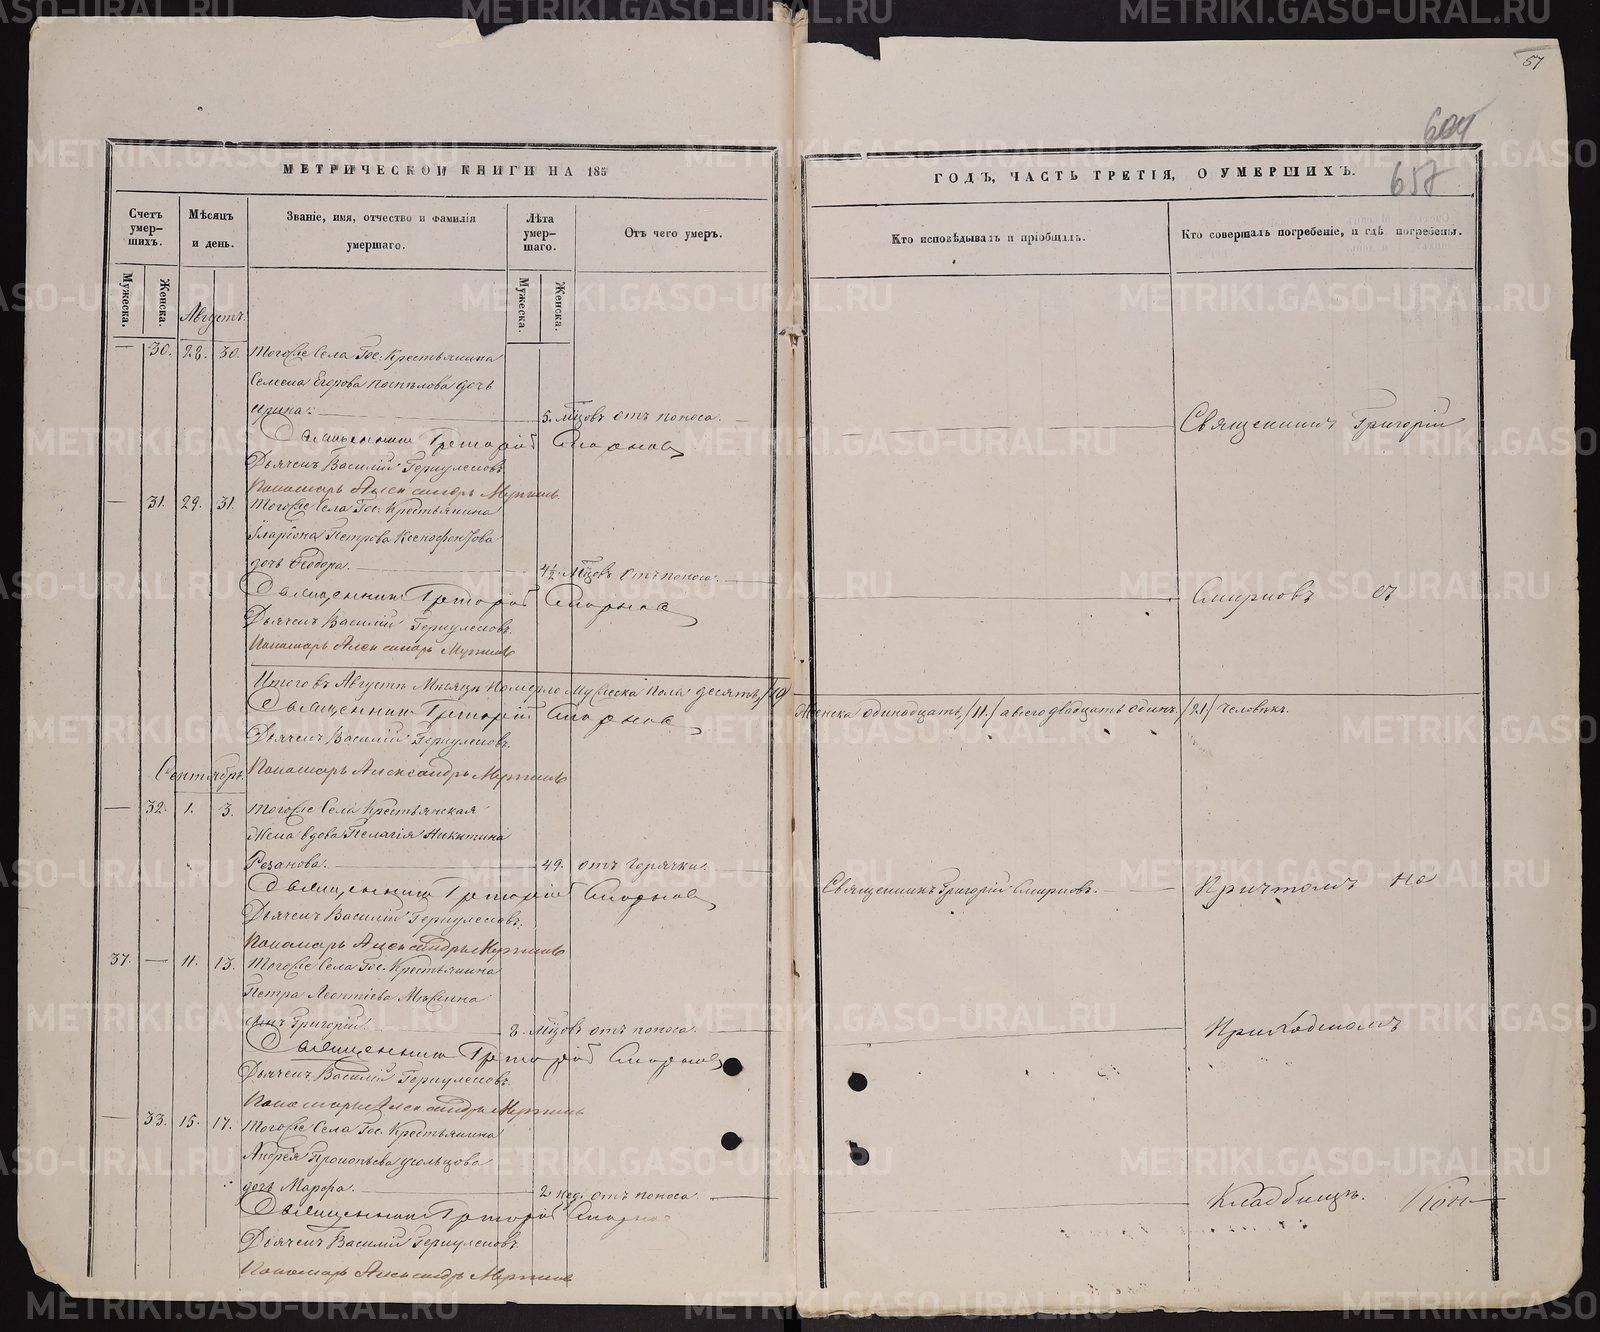 57
604
657
МЕТРИЧЕСКОЙ КНИГИ НА 185
ГОДЪ, ЧАСТЬ ТРЕТІЯ, О УМЕРШИХЪ.
Счетъ умер-шихъ.
Мѣсяцъ и день.
Званіе, имя, отчество и фамилія умершаго.
Лѣта умер-шаго.
Отъ чего умеръ.
Кто исповѣдывалъ и пріобщалъ.
Кто совершалъ погребеніе, и гдѣ погребены.
Мужеска.
Женска.
Мужеска.
Женска.
Августъ.
30. 28. 30. Тогоже Села Гос. Крестьянина
Семена Егорова Поспѣлова дочь
Ирина. 5. мѣцовъ отъ поноса.
Священникъ Григорій
Священникъ Григорій Смирновъ
Дьячекъ Василій Геркулесовъ
Пономарь Александръ
31. 29. 31. Тогоже Села Гос. Крестьянина
Иларіона Петрова Ксенофонтова
дочь Ѳеодора. 4½ мѣцовъ отъ поноса.
Смирновъ съ
Священникъ Григорій Смирновъ
Дьячекъ Василій Геркулесовъ.
Пономарь Александръ
Итого въ Августѣ Мѣсяцѣ померло мужеска пола десять /10/
Женска одинадцать, /11./ а всего двадцать одинъ /21/ человѣкъ.
Священникъ Григорій Смирновъ
Дьячекъ Василій Геркулесовъ.
Сентябрь. Пономарь Александръ
32. 1. 3. Тогоже Села Крестьянская
Жена вдова Пелагія Никитина
Резанова. 49. отъ горячки.
Священникъ Григорій Смирновъ.
Причтомъ на
Священникъ Григорій Смирновъ
Дьячекъ Василій Геркулесовъ.
Пономарь Александръ
37. 11. 13. Тогоже Села Гос. Крестьянина
Петра Леонтіева
сынъ Григорій. 8. мѣцовъ отъ поноса.
Приходскомъ
Священникъ Григорій Смирновъ
Дьячекъ Василій Геркулесовъ.
Пономарь Александръ
33. 15. 17. Тогоже Села Гос. Крестьянина
Андрея Прокопьева Усольцова
дочь Марѳа. 2 нед. отъ поноса.
Кладбищѣ.
Священникъ Григорій Смирнов
Дьячекъ Василій Геркулесовъ.
Пономарь Александръ
METRIKI.GASO-URAL.RU